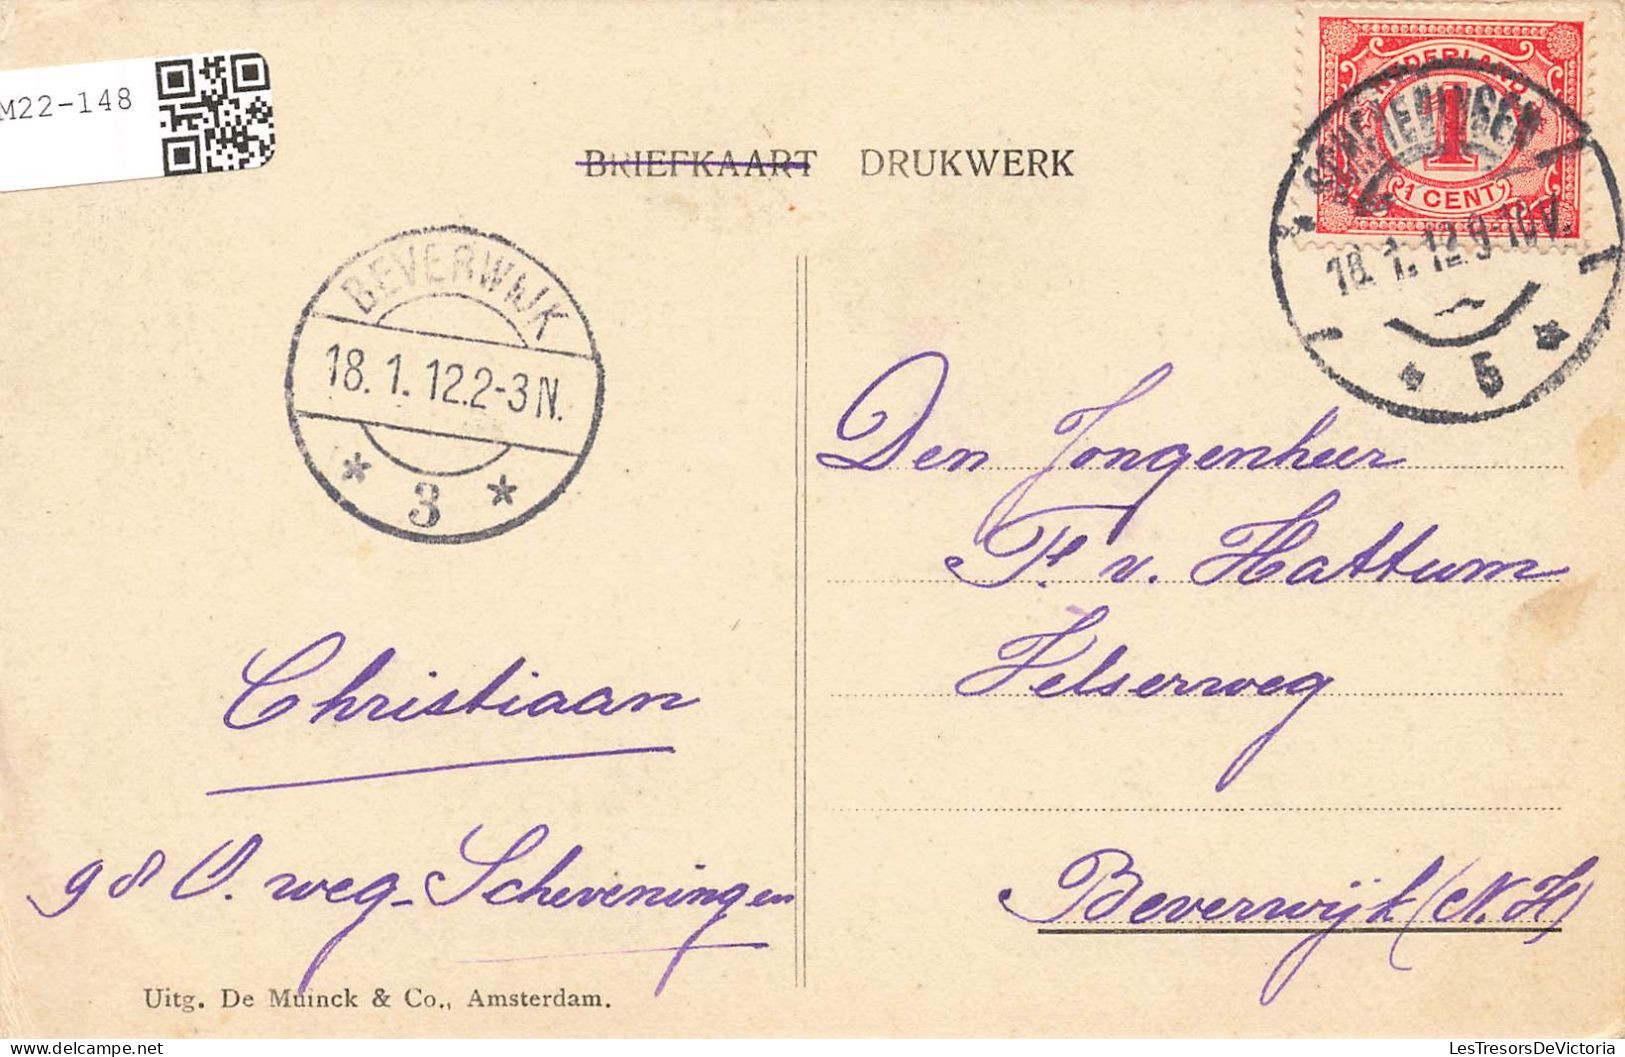 M22-148
BRIEFKAART DRUKWERK
NEDERLAND
1
1 CENT
SCHEVENINGEN
18.1.12.9-10V.
5
BEVERWIJK
18.1.12.2-3N.
3
Den Jongenheer
F. v. Hattum
Velserweg
Beverwijk (N.H)
Christiaan
98 O. weg - Scheveningen
Uitg. De Muinck & Co., Amsterdam.
LesTresorsDeVictoria